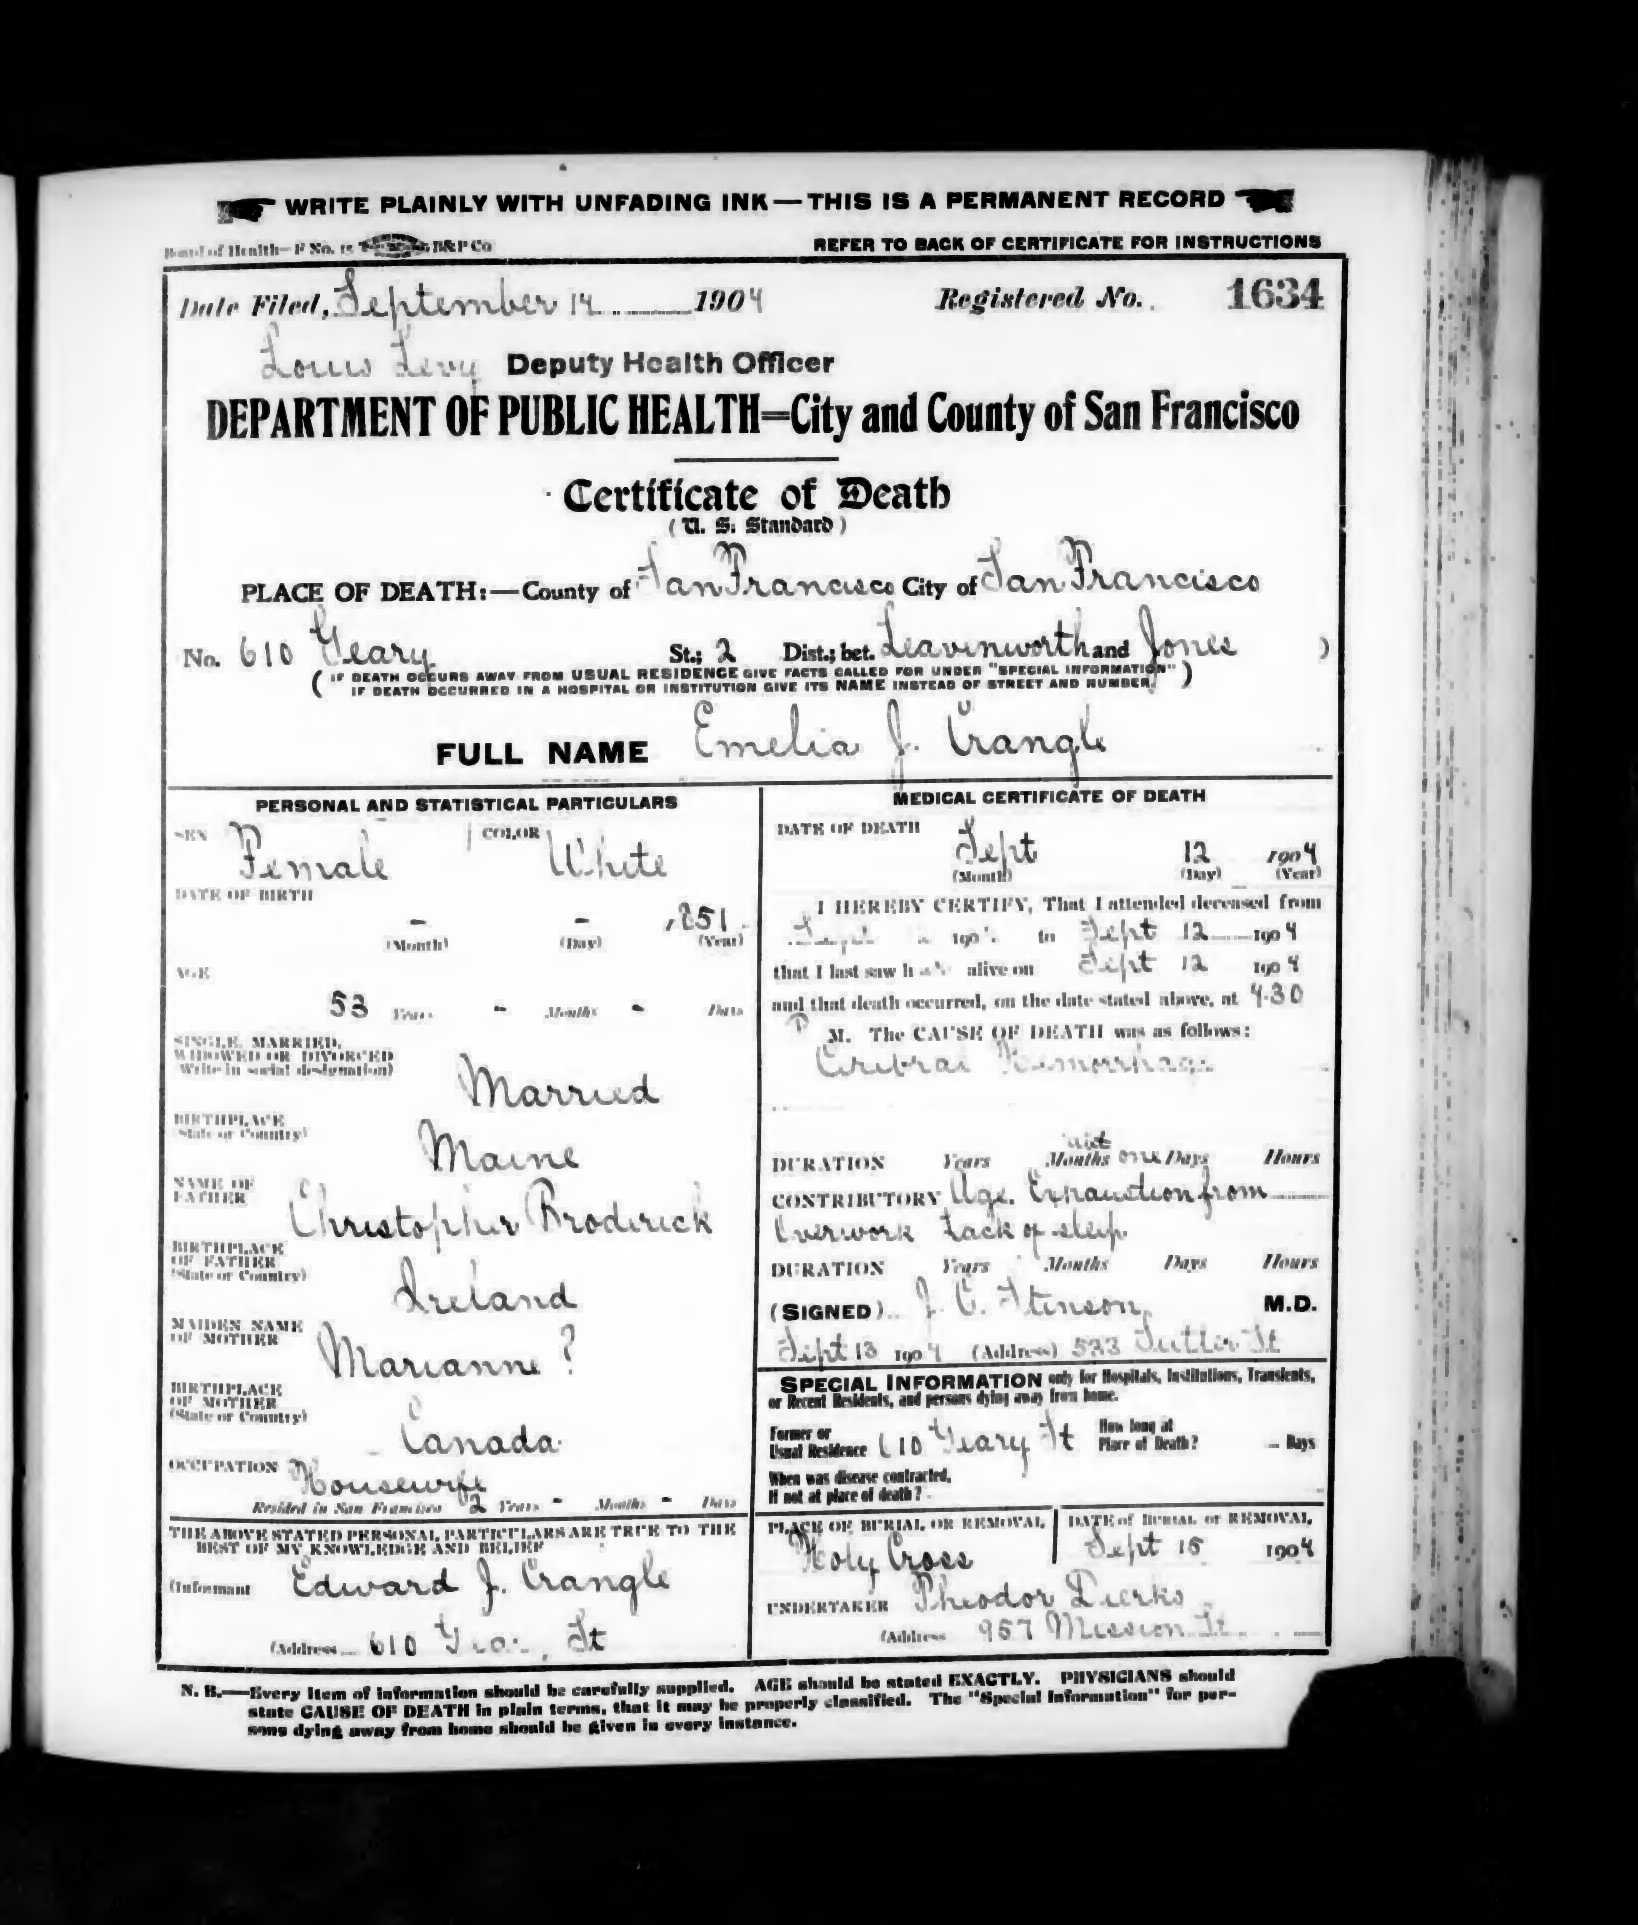 WRITE PLAINLY WITH UNFADING INK—THIS IS A PERMANENT RECORD
Board of Health—F No. 15 B&P Co REFER TO BACK OF CERTIFICATE FOR INSTRUCTIONS
Date Filed, September 14 1904 Registered No. 1634
Louis Levy Deputy Health Officer
DEPARTMENT OF PUBLIC HEALTH=City and County of San Francisco
Certificate of Death
(U. S. Standard)
PLACE OF DEATH:—County of San Francisco City of San Francisco
No. 610 Geary St.; 2 Dist.; bet. Leavenworth and Jones )
( IF DEATH OCCURS AWAY FROM USUAL RESIDENCE GIVE FACTS CALLED FOR UNDER "SPECIAL INFORMATION" )
IF DEATH OCCURRED IN A HOSPITAL OR INSTITUTION GIVE ITS NAME INSTEAD OF STREET AND NUMBER.
FULL NAME Emelia J. Crangle
PERSONAL AND STATISTICAL PARTICULARS
SEX Female COLOR White
DATE OF BIRTH
- - 1851
(Month) (Day) (Year)
AGE
53 Years - Months - Days
SINGLE, MARRIED,
WIDOWED OR DIVORCED
(Write in social designation)
Married
BIRTHPLACE
(State or Country)
Maine
NAME OF
FATHER
Christopher Broderick
BIRTHPLACE
OF FATHER
(State or Country)
Ireland
MAIDEN NAME
OF MOTHER
Marianne ?
BIRTHPLACE
OF MOTHER
(State or Country)
Canada
OCCUPATION Housewife
Resided in San Francisco 2 Years - Months - Days
THE ABOVE STATED PERSONAL PARTICULARS ARE TRUE TO THE
BEST OF MY KNOWLEDGE AND BELIEF
(Informant Edward J. Crangle
(Address 610 Geary St
MEDICAL CERTIFICATE OF DEATH
DATE OF DEATH
Sept 12 1904
(Month) (Day) (Year)
I HEREBY CERTIFY, That I attended deceased from
Sept 190 to Sept 12 1904
that I last saw h alive on Sept 12 1904
and that death occurred, on the date stated above, at 4.30
P M. The CAUSE OF DEATH was as follows:
Cerebral Hemorrhage
DURATION Years Months one Days Hours
CONTRIBUTORY Age. Exhaustion from
Overwork Lack of sleep.
DURATION Years Months Days Hours
(SIGNED) J. C. Stinson, M.D.
Sept 13 1904 (Address) 533 Sutter St
SPECIAL INFORMATION only for Hospitals, Institutions, Transients,
or Recent Residents, and persons dying away from home.
Former or
Usual Residence 610 Geary St
How long at
Place of Death? - Days
When was disease contracted,
If not at place of death?
PLACE OF BURIAL OR REMOVAL
Holy Cross
DATE of BURIAL or REMOVAL
Sept 15 1904
UNDERTAKER Theodor Dierks
(Address 957 Mission St
N. B.—Every item of information should be carefully supplied. AGE should be stated EXACTLY. PHYSICIANS should
state CAUSE OF DEATH in plain terms, that it may be properly classified. The "Special Information" for per-
sons dying away from home should be given in every instance.